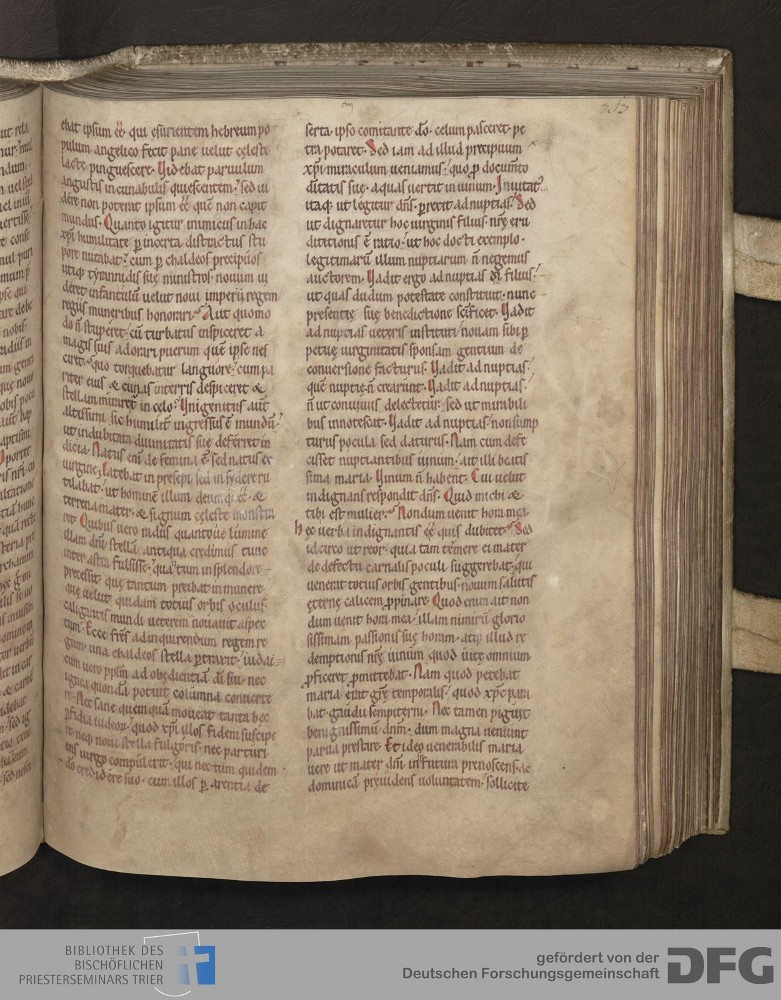 213
ebat ipsum eē qui esurientem hebreum po
pulum angelico fecit pane uelut celeste
lacte pinguescere. Videbat paruulum
angustis in cunabulis quiescentem. sed ui
dere non poterat ipsum eē quē non capit
mundus. Quanto igitur inimicus in hac
xp̄i humilitate ꝑ incerta distractus stu
pore nutabat. cum ꝑ chaldeos precipuos
utiq; tyrannidis suę ministros nouum ui
deret infantulū uelut noui imperii regem
regiis muneribus honorari. Aut quomo
do n̄ stuperet. cū turbatus inspiceret a
magis suis adorari puerum quē ipse nes
ciret. quo torquebatur languore. cum pa
riter eius & cunas in terris despiceret &
stellam miraret in celo? Vnigenitus aut̄
altissimi sic humilit̄ ingressus ē mundū.
ut indubitata diuinitatis suę deferret in
dicia. Natus eni de femina ē. sed natus ex
uirgine. Latebat in presepi. sed in sydere ru
tilabat. ut hominē illum deumq; eē. &
terrena mater. & signum celeste monstra
ret Quibus uero radiis quantoue lumine
illam dn̄i stellā antiqua credimus tunc
inter astra fulsisse. quę tum in splendore
precessit quę tantum preibat in munere
quę uelut quidam totius orbis oculus.
caligantis mundi ueterem nouauit aspec
tum. Ecce fr̄s ad inquirendum regem re
gum una chaldeos stella ꝑtraxit. iudai
cum uero pplm ad obędientiā di sui nec
ignea quondā potuit columna conuerte
re. Nec sane quemquā moueat tanta hęc
ꝑfidia iudeoꝝ. quod xp̄i illos fidem suscipe
re neq; noui stella fulgoris. nec parturi
ens uirgo compulerit. qui nec tum quidem
dō credidere suo. cum illos ꝑ arentia de
serta ipso comitante dō. celum pasceret. pe
tra potaret. Sed iam ad illud precipuum
xp̄i miraculum ueniamus. quo ꝓ documēto
diuitatis suę. aquas uertit in uinum. Inuitat᷒
itaq; ut legitur dn̄s. ꝑrexit ad nuptias. Sed
ut dignaretur hoc uirginis filius. nr̄ę eru
ditionis ē ratio. ut hoc docti exemplo.
legitimarū illum nuptiarum n̄ negemus
auctorem. Vadit ergo ad nuptias di filius.
ut quas dudum potestate constituit. nunc
presentię suę benedictione sc̄ificet. Vadit
ad nuptias ueteris instituti. nouam sibi ꝑ
petuę uirginitatis sponsam gentium de
conuersione facturus. Vadit ad nuptias.
quē nuptię n̄ crearunt. Vadit ad nuptias.
n̄ ut conuiuiis delectetur. sed ut mirabili
bus innotescat. Vadit ad nuptias. non sump
turus pocula sed daturus. Nam cum defe
cisset nuptiantibus uinum. ait illi beatis
sima maria. Vinum n̄ habent. Cui uelut
indignans respondit dn̄s. Quid michi &
tibi est mulier. Nondum uenit hora mea.
hęc uerba indignantis eē quis dubitet. Sed
idcirco ut reor. quia tam temere ei mater
de defectu carnalis poculi suggerebat. qui
uenerat totius orbis gentibus. nouum salutis
ęternę calicem ꝓpinare. Quod enim ait non
dum uenit hora mea. illam nimirū glorio
sissimam passionis suę horam. atq; illud re
demptionis nr̄ę uinum quod uitę omnium
ꝓficeret ꝓmittebat. Nam quod petebat
maria erat gr̄ę temporalis. quod xp̄c para
bat. gaudii sempiterni. Nec tamen piguit
benignissimū dn̄m. dum magna ueniunt
parua prestare. Et ideo uenerabilis maria
uere ut mater dn̄i in futura prenoscens. &
dominicā preuidens uoluntatem. sollicite
BIBLIOTHEK DES
BISCHÖFLICHEN
PRIESTERSEMINARS TRIER
gefördert von der
Deutschen Forschungsgemeinschaft
DFG